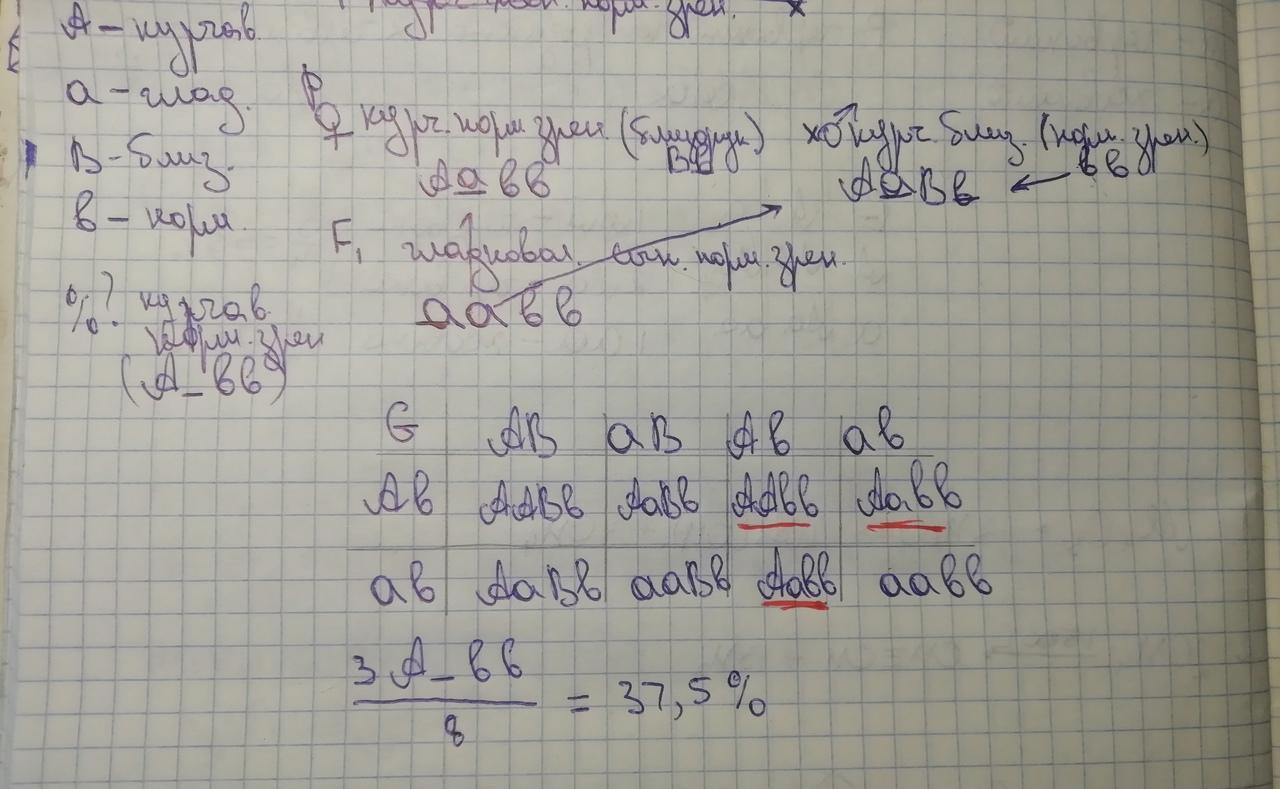 норм. зрен. х
А - курчав.
а - глад.
Р
♀ курч. норм. зрен. (близорук) х ♂ курч. близ. (норм. зрен.)
В - близ.
Аавв
АаВв ← вв
в - норм.
F₁ гладковол. сын. норм. зрен.
%? курчав.
норм. зрен
(А_вв)
аавв
G АВ аВ Ав ав
Ав ААВв АаВв ААвв Аавв
ав АаВв ааВв Аавв аавв
3 А_вв
8
= 37,5%